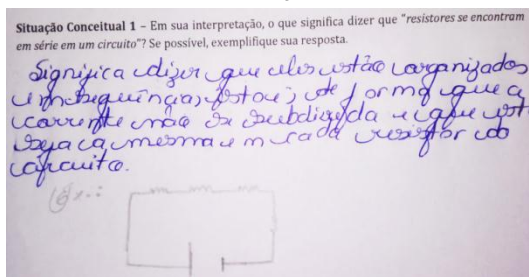 Situação Conceitual 1 – Em sua interpretação, o que significa dizer que "resistores se encontram
em série em um circuito"? Se possível, exemplifique sua resposta.
Significa dizer que eles estão organizados
em sequência, de forma que a
corrente não se subdivida e que
seja a mesma em cada resistor do
circuito.
Ex.: